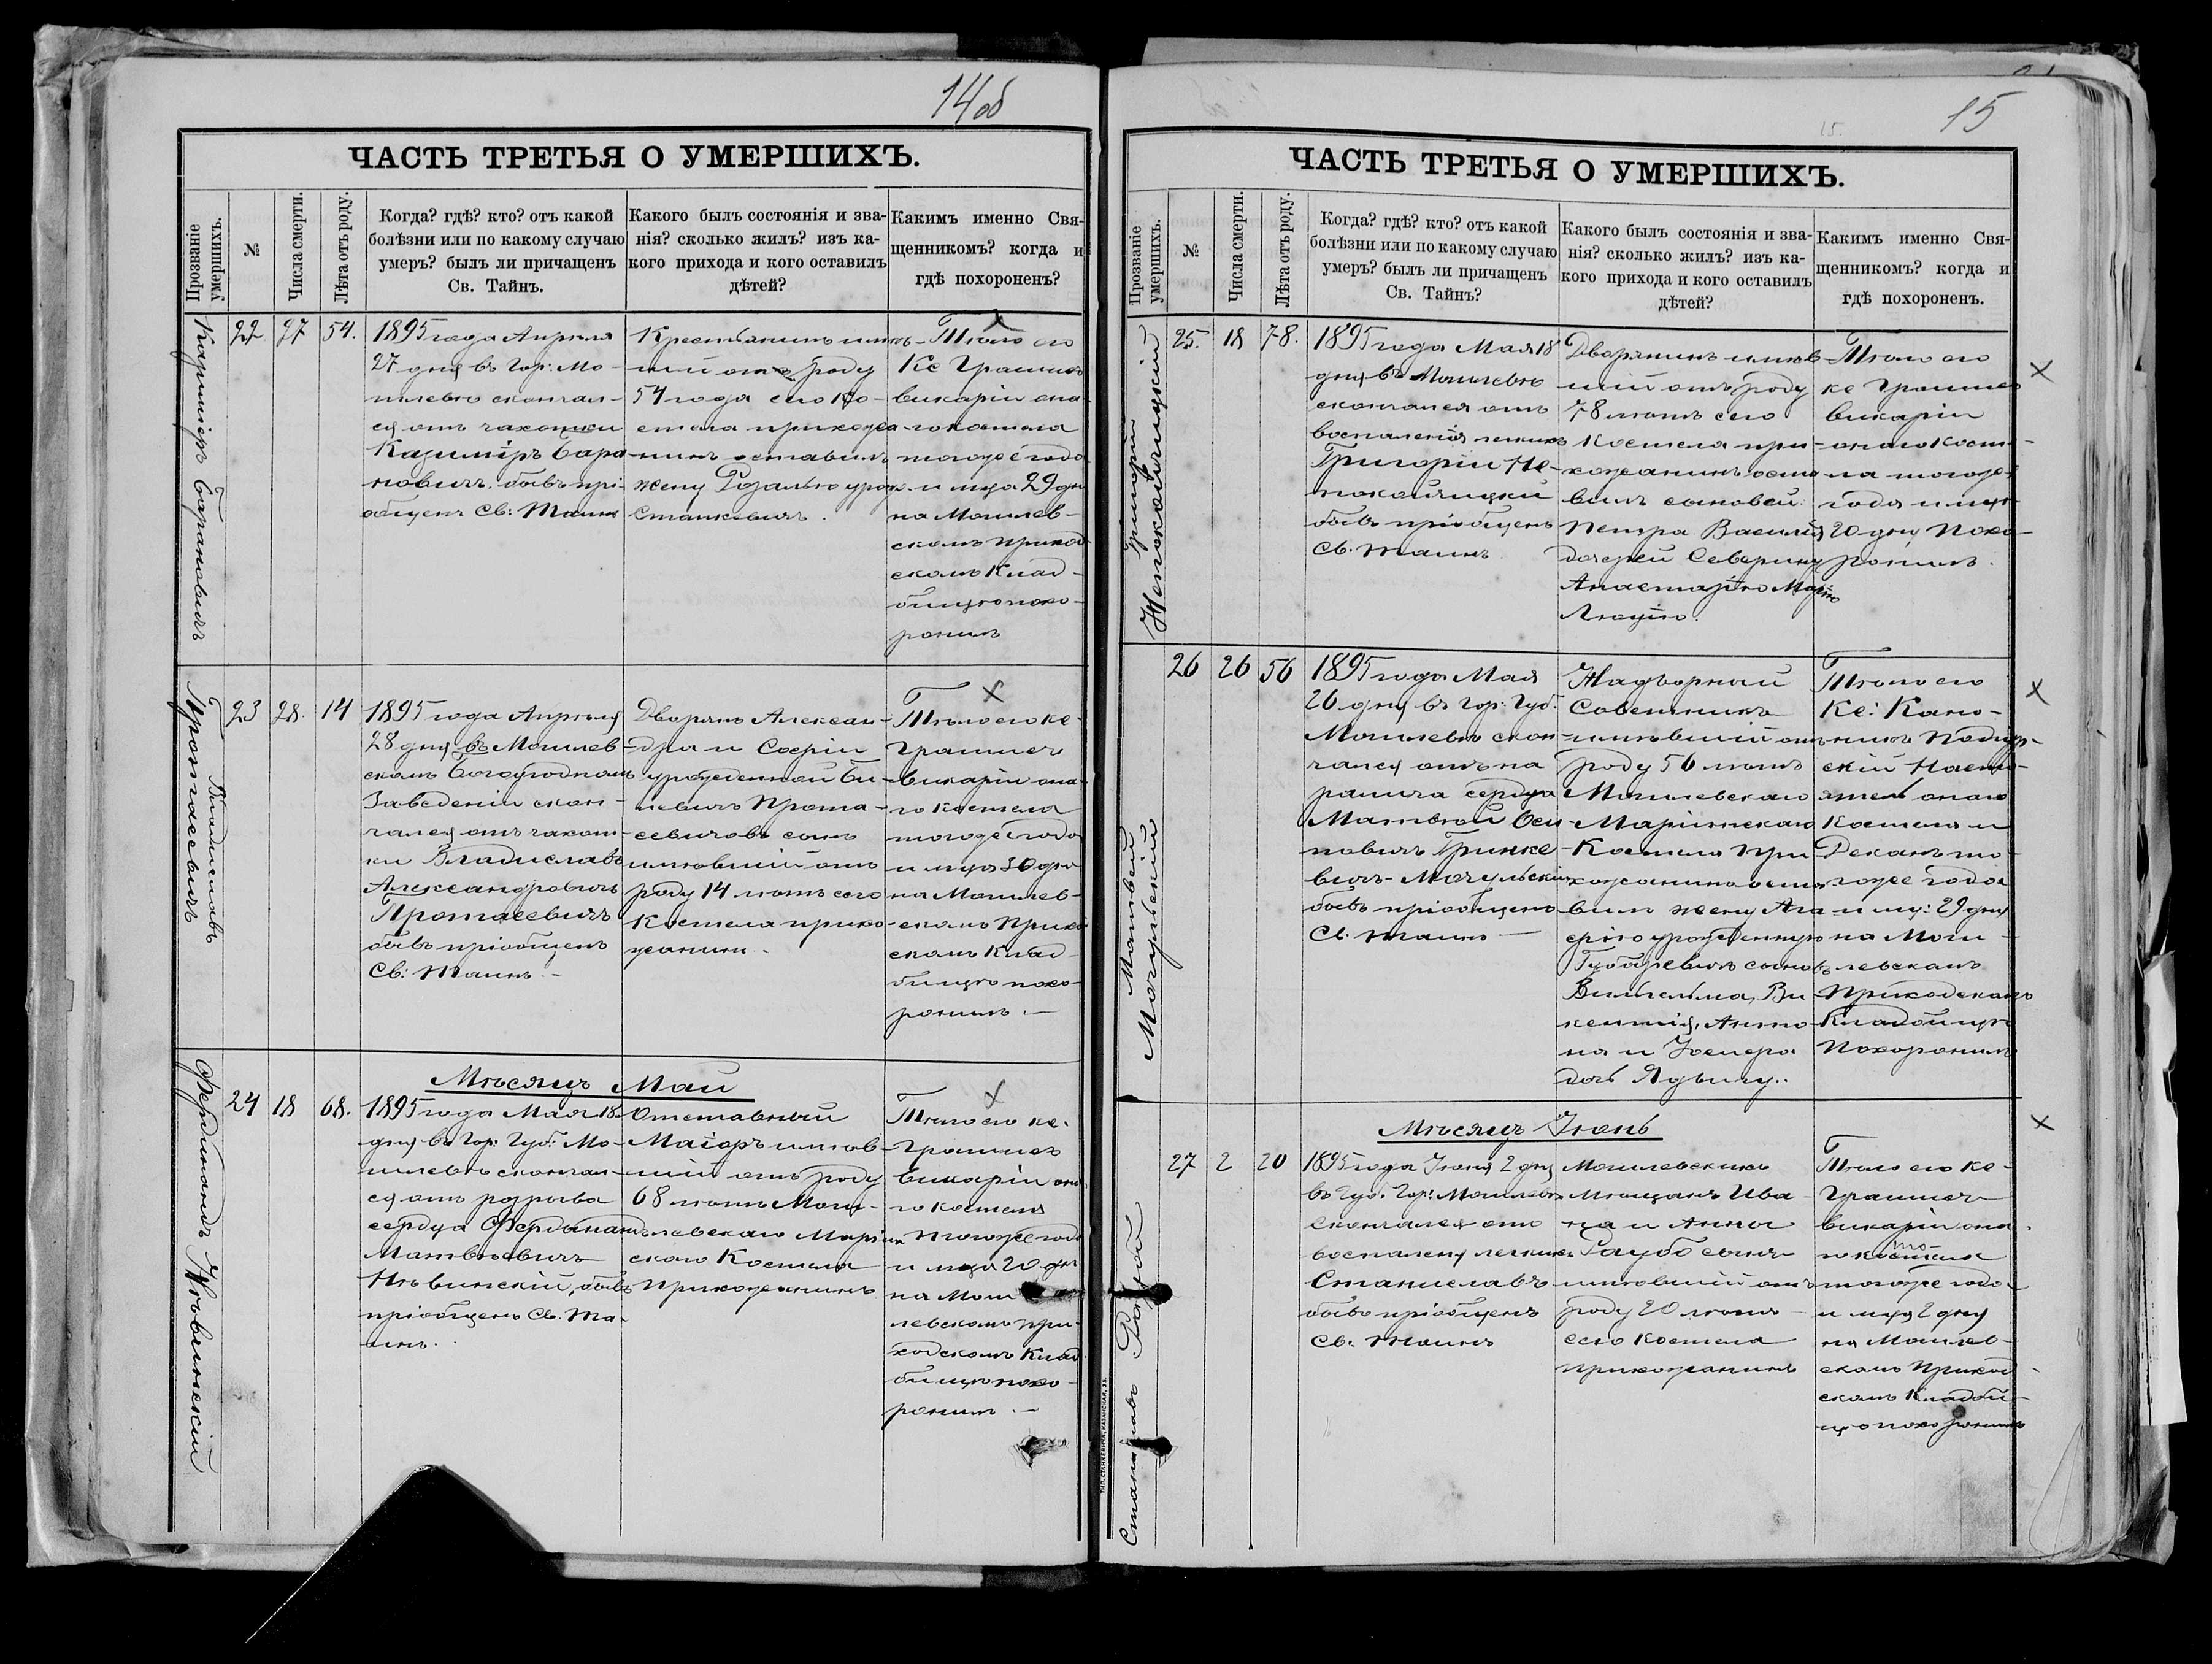 14об
ЧАСТЬ ТРЕТЬЯ О УМЕРШИХЪ.
Прозваніе умершихъ.
№
Числа смерти.
Лѣта отъ роду.
Когда? гдѣ? кто? отъ какой
болѣзни или по какому случаю
умеръ? былъ ли причащенъ
Св. Тайнъ.
Какого былъ состоянія и зва-
нія? сколько жилъ? изъ ка-
кого прихода и кого оставилъ
дѣтей?
Какимъ именно Свя-
щенникомъ? когда и
гдѣ похороненъ?
Казиміръ Барановичъ
22
27
54.
1895 года Апрѣля
27 дня въ Гор: Мо-
гилевѣ скончал-
ся отъ чахотки
Казиміръ Бара-
новичъ бывъ прі-
общенъ Св: Таинъ
Крестьянинъ имѣв-
шій отъ роду
54 года сего Ко-
стела прихожа-
нинъ оставилъ
жену Розалью урож.
Станкевичъ.
Тѣло его
Кс Грашись
викарій она-
го костела
тогоже года
и мца 29 дня
на Могилев-
скомъ приход
скомъ Клад-
бищѣ похо-
ронилъ
Владиславъ
Протасевичъ
23
28.
14
1895 года Апрѣля
28 дня въ Могилев-
скомъ Богоугодномъ
Заведеніи скон-
чался отъ чахот-
ки Владиславъ
Александровичъ
Протасевичъ
бывъ пріобщенъ
Св: Таинъ. -
Дворянъ Алексан-
дра и Софіи
урожденной Би-
левичъ Прота-
севичовъ сынъ
имѣвшій отъ
роду 14 лѣтъ сего
Костела прихо-
жанинъ.
Тѣло его кс.
викарій она-
го Костела
тогоже года
и мца 30 дня
на Могилев-
скомъ Приход
скомъ Клад
бищѣ похо-
ронилъ. —
Мѣсяцъ Май
Фердинандъ Нѣвинскій
24
18
68.
1895 года Мая 18
дня въ Гор: Губ: Мо-
гилевѣ скончал-
ся отъ разрыва
сердца Фердинандъ
Матвѣевичъ
Нѣвинскій, бывъ
пріобщенъ Св. Та-
инъ.
Отставный
Маіоръ имѣв-
шій отъ роду
68 лѣтъ Моги-
левскаго Маріин
скаго Костела
Прихожанинъ
Тѣло его кс.
викарій она
го костела
тогоже года
и мца 20 дня
на Моги
левскомъ при-
ходскомъ Клад
бищѣ похо-
ронилъ. —
15
15.
ЧАСТЬ ТРЕТЬЯ О УМЕРШИХЪ.
Прозваніе умершихъ.
№
Числа смерти.
Лѣта отъ роду.
Когда? гдѣ? кто? отъ какой
болѣзни или по какому случаю
умеръ? былъ ли причащенъ
Св. Тайнъ?
Какого былъ состоянія и зва-
нія? сколько жилъ? изъ ка-
кого прихода и кого оставилъ
дѣтей?
Какимъ именно Свя-
щенникомъ? когда и
гдѣ похороненъ.
Григорій
Непокойчицкій
25.
18
78.
1895 года Мая 18
дня въ Могилевѣ
скончался отъ
воспаленія легкихъ
Григорій Не-
покойчицкій
бывъ пріобщенъ
Св. Таинъ.
Дворянинъ имѣв-
шій отъ роду
78 лѣтъ сего
Костела при-
хожанинъ оста
вилъ сыновей:
Петра Василія
дочерей Северину
Анастазію Марію
Люцію.
Тѣло его
викарій
онаго Косте-
ла тогоже
года и мца
20 дня Похо-
ронилъ.
Матвей
Мочульскій
26
26
56
1895 года Мая
26 дня въ Гор: Губ:
Могилевѣ скон-
чался отъ па
ралича сердца
Матвѣй Оси-
повичъ Гринке
вичъ-Мочульскій
бывъ пріобщенъ
Св. Таинъ —
Надворный
Советникъ
имѣвшій отъ
роду 56 лѣтъ
Могилевскаго
Маріинскаго
Костела При
хожанинъ оста
вилъ жену Ага
фію урожденную
сыновъ
Вильгельма, Ви
кентія, Анто-
на и Іосифа
дочь Ядвигу..
Тѣло его
Кс: Кано-
никъ
Насто-
ятель онаго
Костела и
Деканъ то-
гоже года
и мц: 29 дня
на Моги-
левскомъ
Приходскомъ
Кладбищѣ
Похоронилъ
Мѣсяцъ Іюнь
Станиславъ
27
2
20
1895 года Іюня 2 дня
въ Губ: Гор: Могилевѣ
скончался отъ
воспаленія легкихъ
Станиславъ
бывъ пріобщенъ
Св. Таинъ
Могилевскихъ
Мѣщанъ Ива-
на и Анны
сынъ
имѣвшій отъ
роду 20 лѣтъ
сего Костела
прихожанинъ
Тѣло его кс-
викарій она-
го костела
тогоже года
и мца 2 дня
на Могилев-
скомъ Приход-
скомъ Кладби-
щѣ похоронилъ